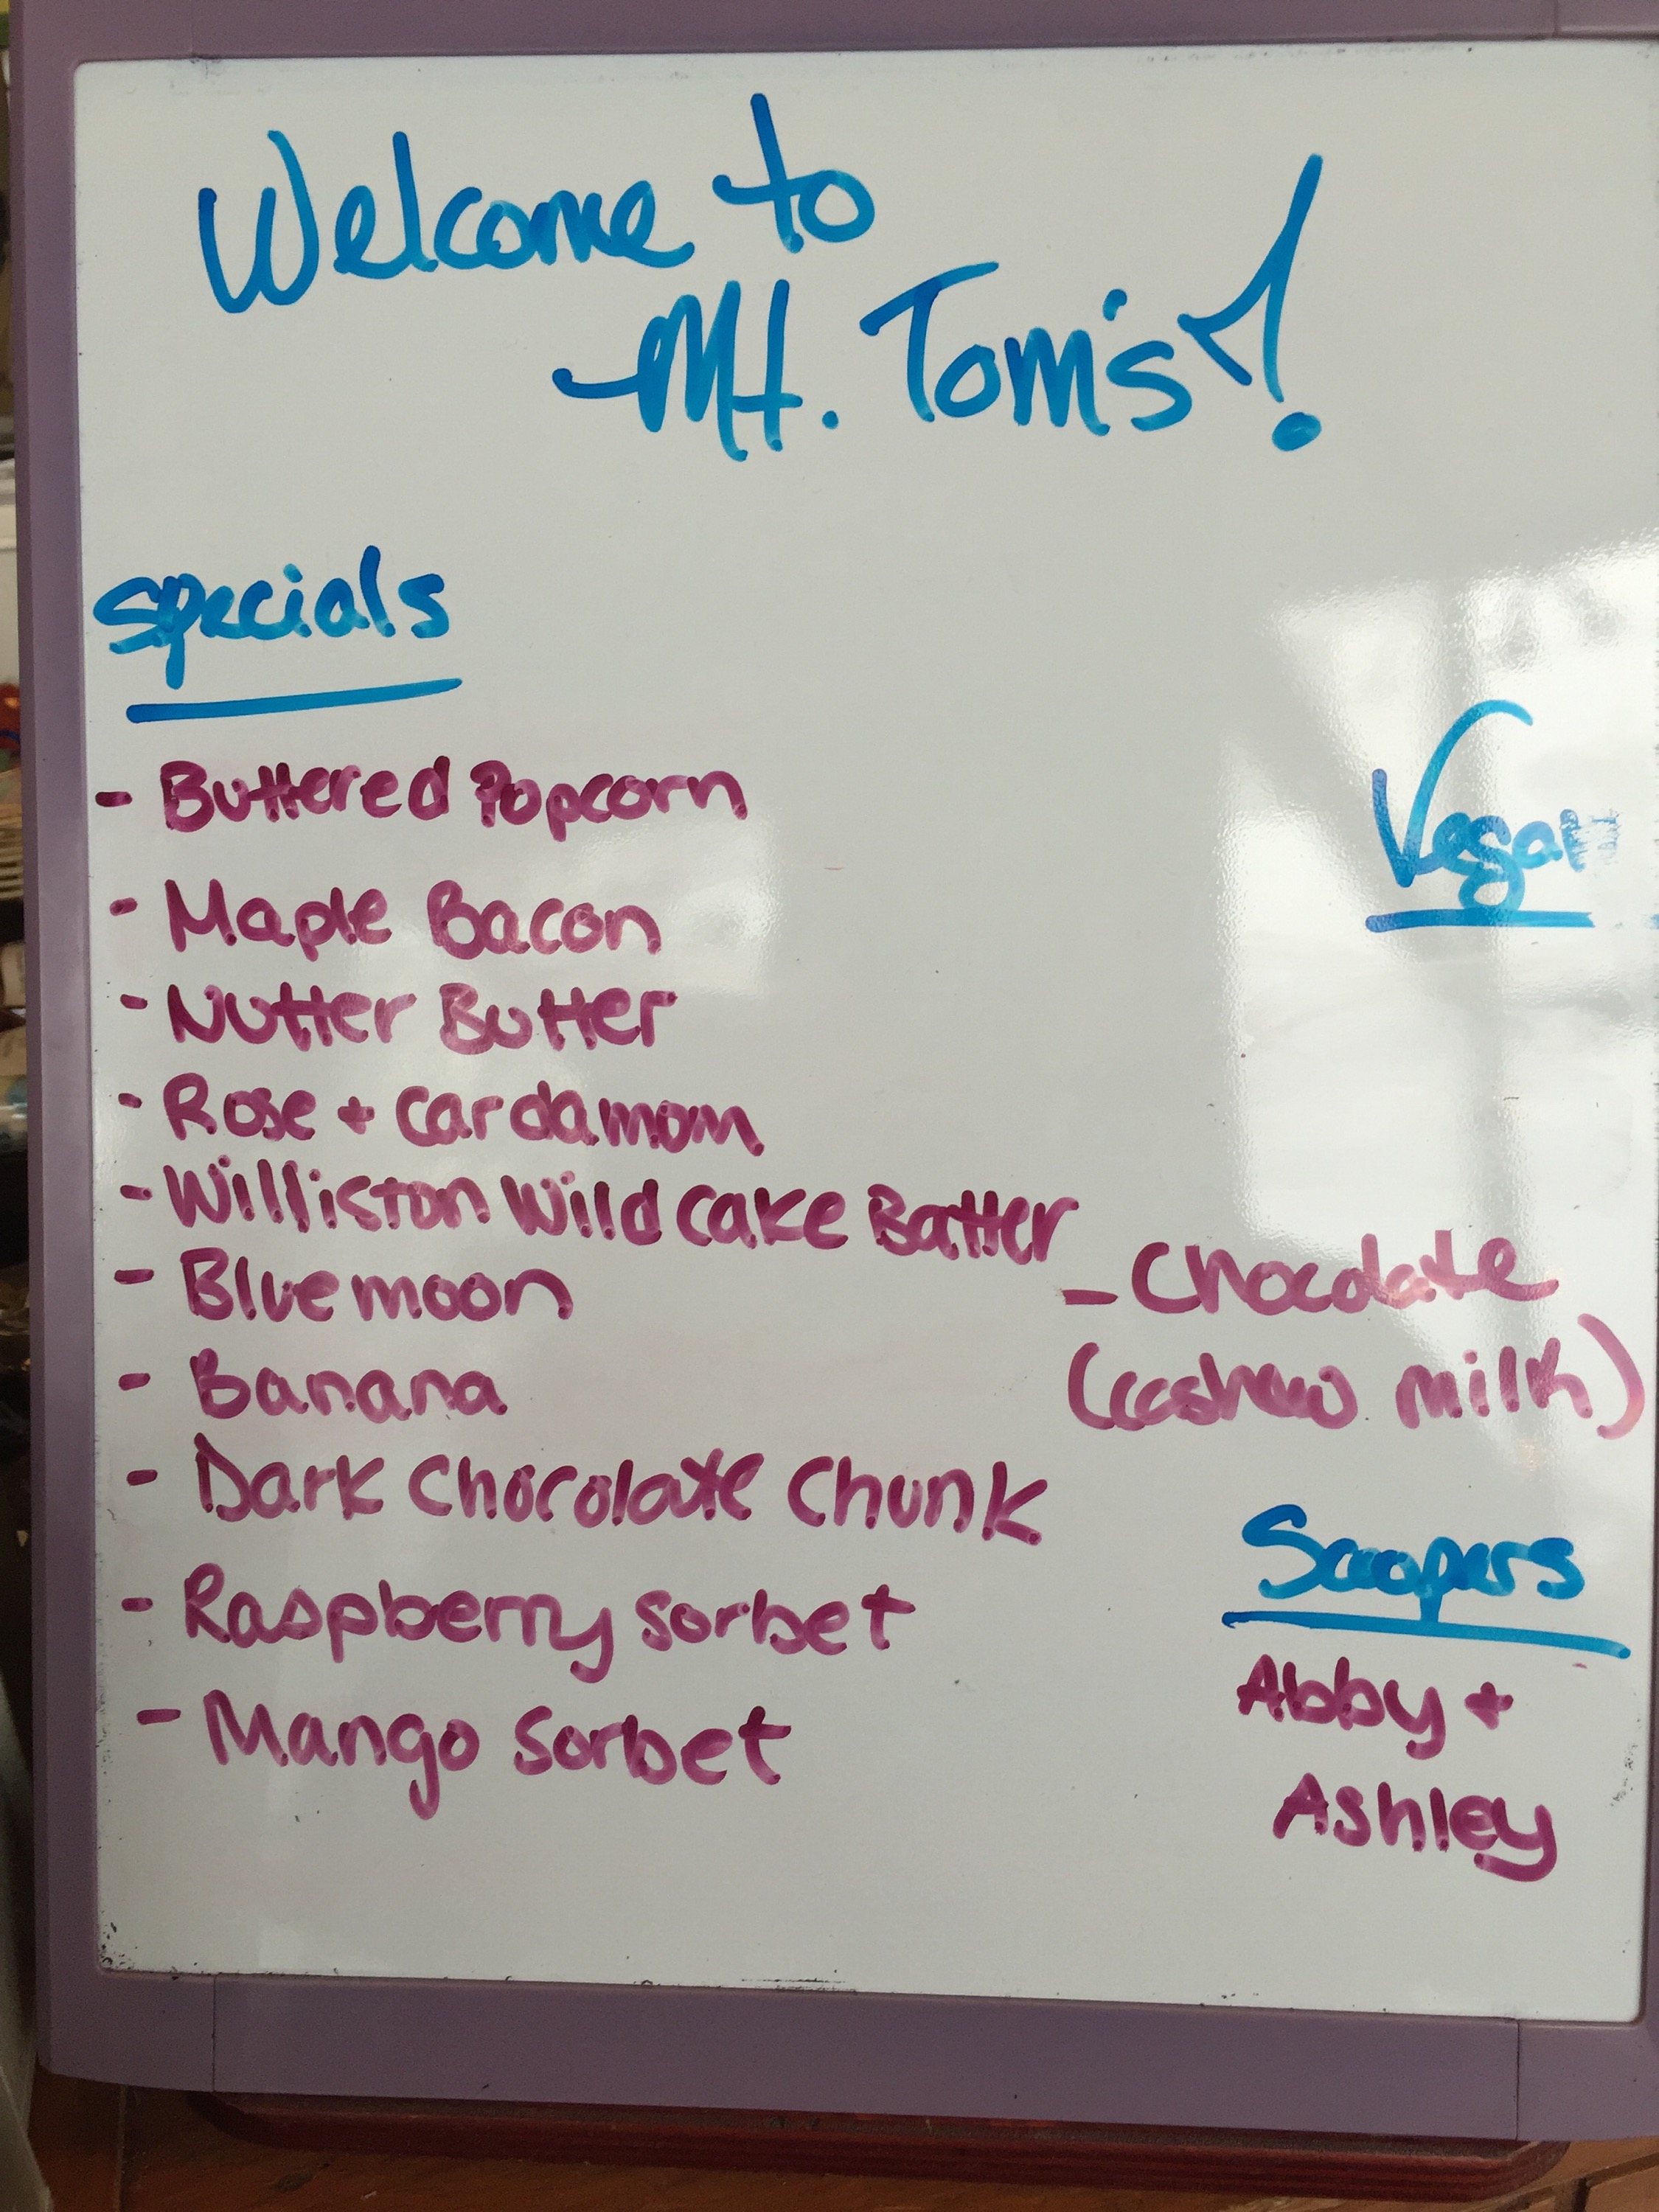 Welcome to
Mt. Tom's!
specials
- Buttered Popcorn
- Maple Bacon
- Nutter Butter
- Rose + Cardamom
- Williston Wild Cake Batter
- Blue moon
- Banana
- Dark Chocolate Chunk
- Raspberry Sorbet
- Mango Sorbet
Vegan
- Chocolate
(cashew milk)
Scoopers
Abby +
Ashley